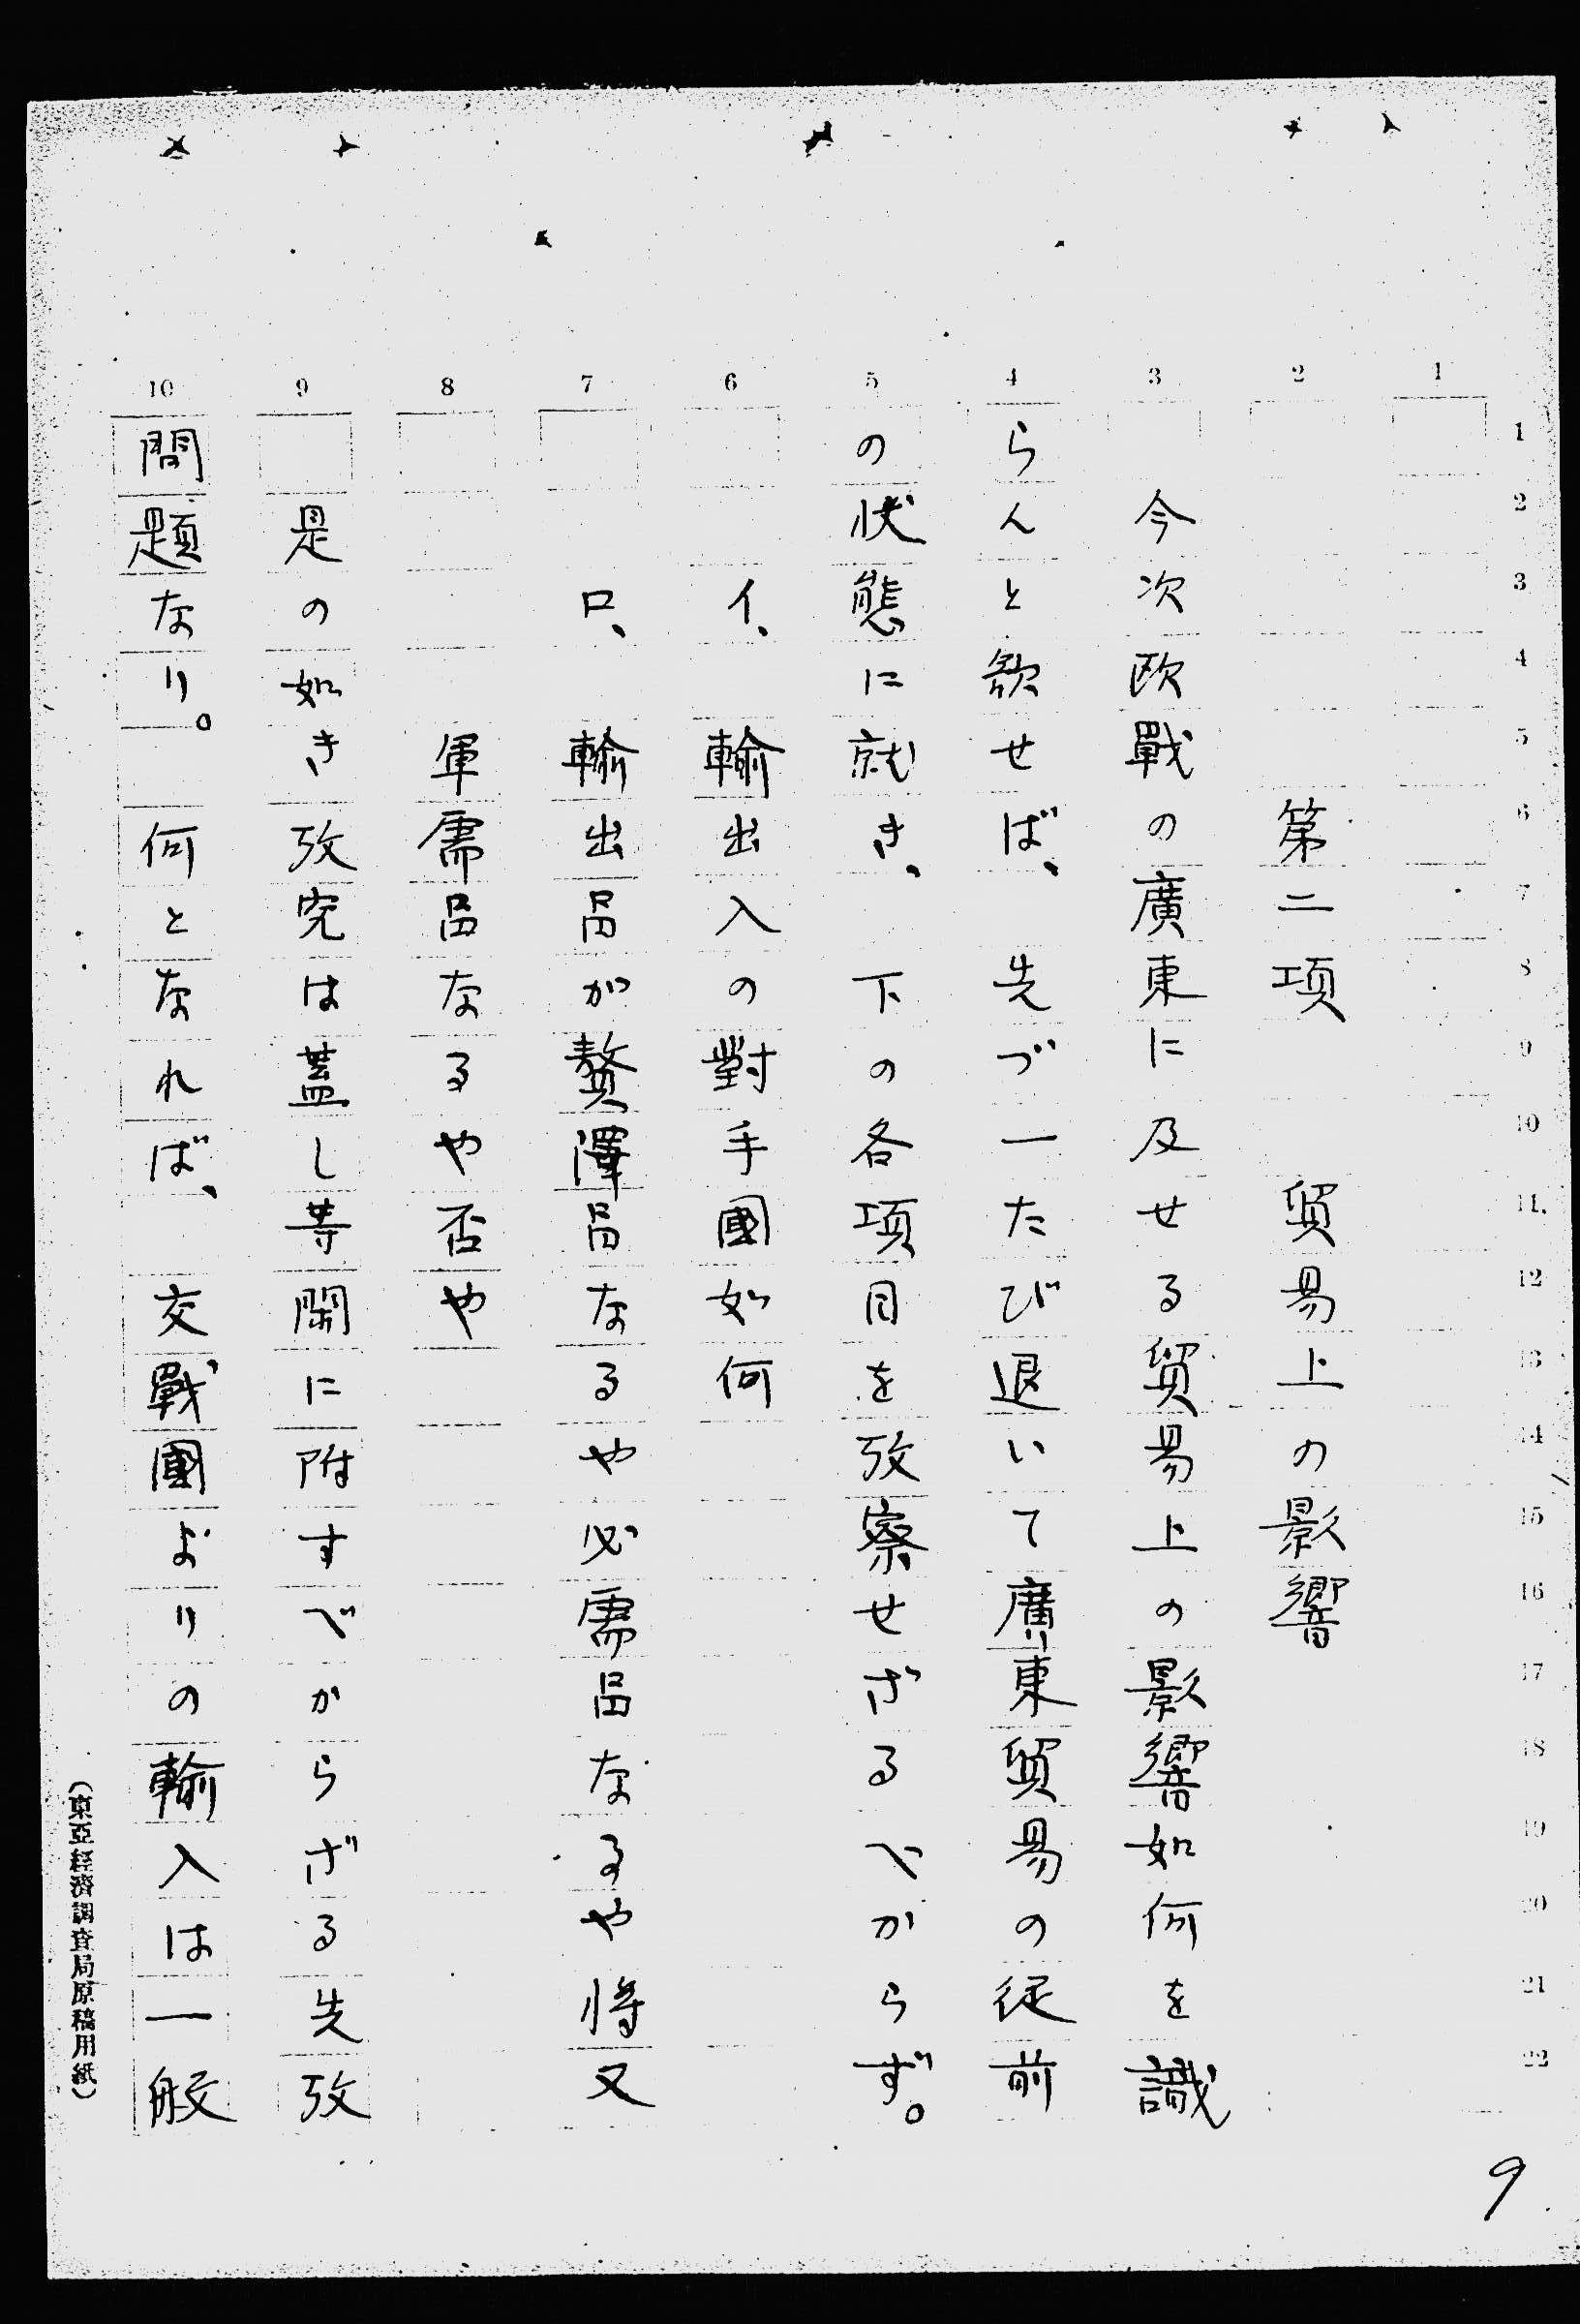 1 2 3 4 5 6 7 8 9 10
1 2 3 4 5 6 7 8 9 10 11. 12 13 14 15 16 17 18 19 20 21 22
第二項　貿易上の影響
今次欧戰の廣東に及せる貿易上の影響如何を識
らんと欲せば、先づ一たび退いて廣東貿易の従前
の状態に就き、下の各項目を攷察せざるべからず。
イ、輸出入の對手國如何
ロ、輸出品が贅澤品なるや必需品なるや將又
軍需品なるや否や
是の如き攷究は蓋し等閑に附すべからざる先攷
問題なり。何となれば、交戰國よりの輸入は一般
（東亞経済調査局原稿用紙）
9